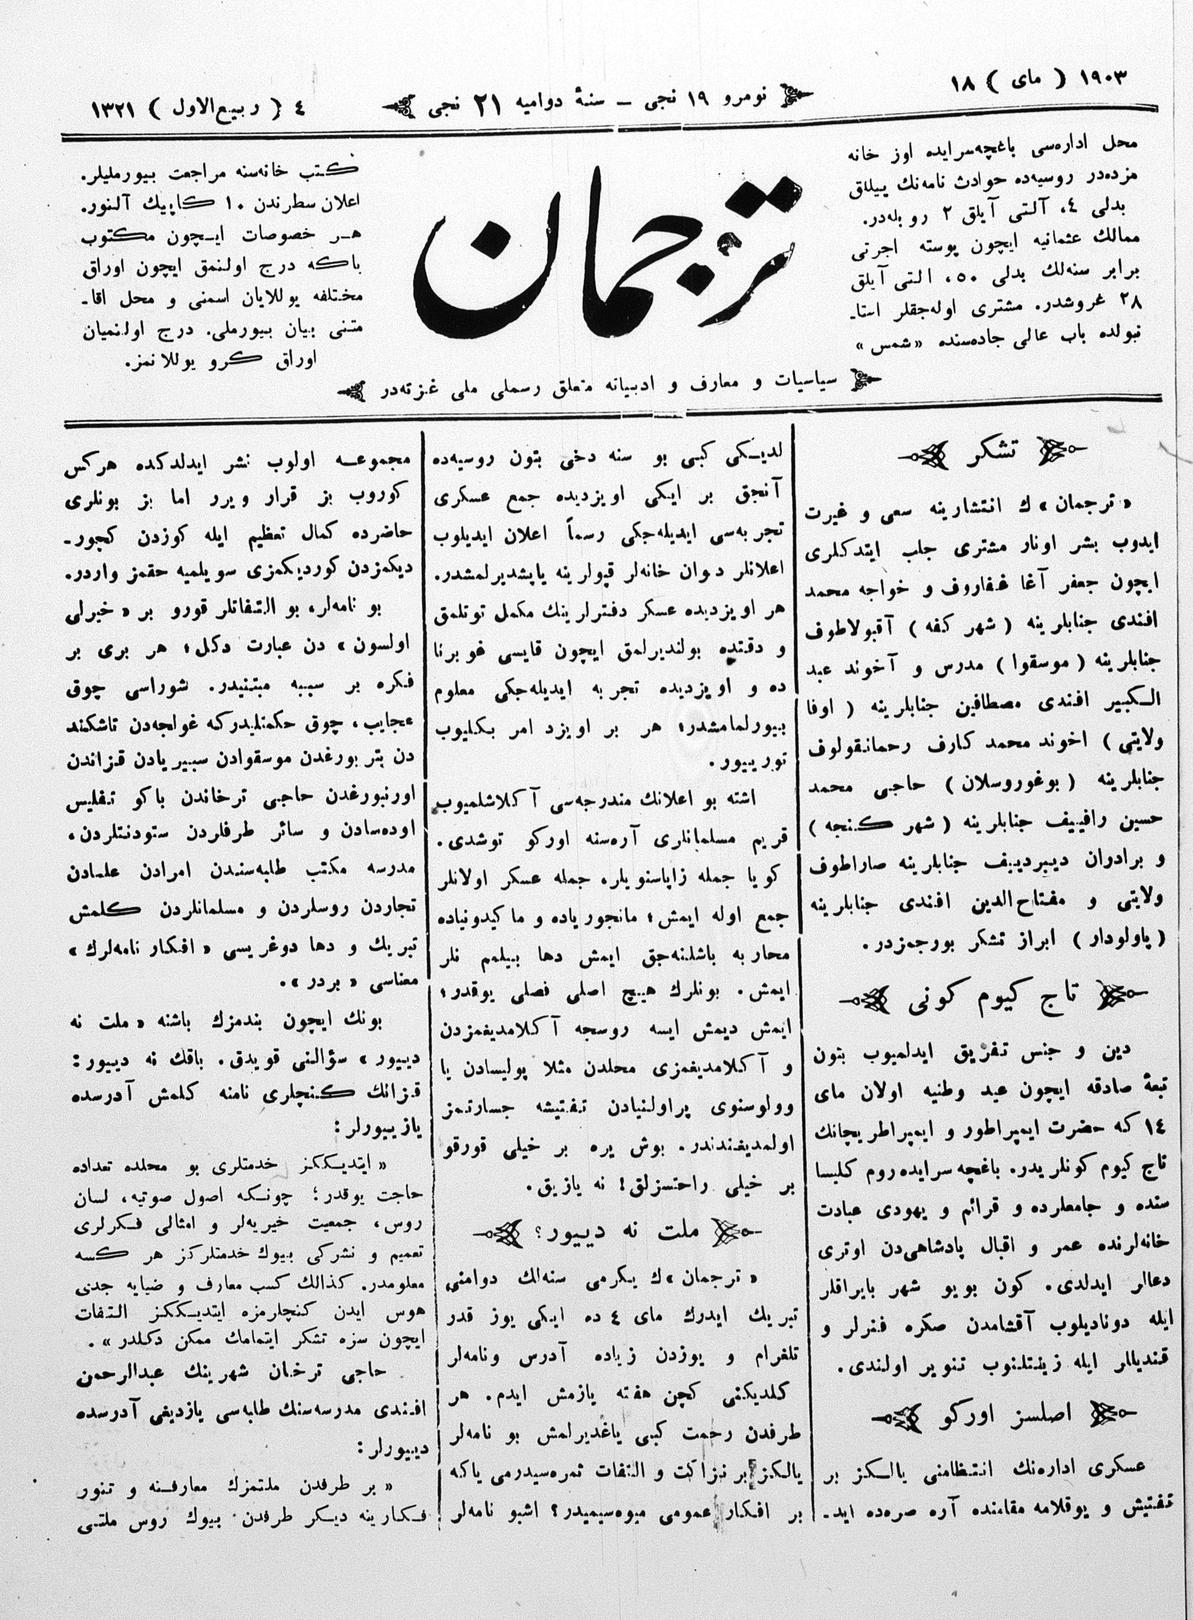 ١٩٠٣ ( مای ) ١٨
نومرو ١٩ نجی ــ سنهٔ دوامیه ٢١ نجی
٤ ( ربیع‌الاول ) ١٣٢١
محل اداره‌سی باغچه‌سرایده اوز خانه
مزده‌در روسیه‌ده حوادث نامه‌نك ییللق
بدلی ٤، آلتی آیلق ٢ روبله‌در.
ممالك عثمانیه ایچون پوسته اجرتی
برابر سنه‌لك بدلی ٥٠، التی آیلق
٢٨ غروشدر. مشتری اوله‌جقلر استا۔
نبولده باب عالی جاده‌سنده «شمس»
ترجمان
كتب خانه‌سنه مراجعت بیورملیلر.
اعلان سطرندن ١٠ كاپیك آلنور.
هر خصوصات ایچون مكتوب
باكه درج اولنمق ایچون اوراق
مختلفه یوللایان اسمنی و محل اقا۔
متنی بیان بیورملی. درج اولنمیان
اوراق كرو یوللانمز.
سیاسیات و معارف و ادبیانه متعلق رسملی ملی غزته‌در
تشكر
«ترجمان»ك انتشارینه سعی و غیرت
ایدوب بشر اونار مشتری جلب ایتدكلری
ایچون جعفر آغا غفاروف و خواجه محمد
افندی جنابلرینه ( شهر كفه ) آقبولاطوف
جنابلرینه ( موسقوا ) مدرس و آخوند عبد
الكبیر افندی مصطافین جنابلرینه ( اوفا
ولایتی ) اخوند محمد كارف رحمانقولوف
جنابلرینه ( بوغوروسلان ) حاجی محمد
حسین رافییف جنابلرینه ( شهر كنجه )
و برادران دیبردییف جنابلرینه صاراطوف
ولایتی و مفتاح‌الدین افندی جنابلرینه
( پاولودار ) ابراز تشكر بورجمزدر.
تاج كیوم كونی
دین و جنس تفریق ایدلمیوب بتون
تبعهٔ صادقه ایچون عید وطنیه اولان مای
١٤ كه حضرت ایمپراطور و ایمپراطریچانك
تاج كیوم كونلریدر. باغچه‌سرایده روم كلیسا
سنده و جامعلرده و قرائم و یهودی عبادت
خانه‌لرنده عمر و اقبال پادشاهی‌دن اوتری
دعالر ایدلدی. كون بویو شهر بایراقلر
ایله دونادیلوب آقشامدن صكره فنرلر و
قندیللر ایله زینتلنوب تنویر اولندی.
اصلسز اوركو
عسكری اداره‌نك انتظامنی یالكز بر
تفتیش و یوقلامه مقامنده آره صره‌ده اید۔
لدیكی كبی بو سنه دخی بتون روسیه‌ده
آنجق بر ایكی اویزدیده جمع عسكری
تجربه‌سی ایدیله‌جكی رسماً اعلان ایدیلوب
اعلانلر دیوان خانه‌لر قپولرینه یاپشدیرلمشدر.
هر اویزدیده عسكر دفترلرینك مكمل توتلمق
و دقتده بولندیرلمق ایچون قایسی غوبرنا
ده و اویزدیده تجربه ایدیله‌جكی معلوم
بیورلمامشدر؛ هر بر اویزد امر بكلیوب
توریییور.
اشته بو اعلانك مندرجه‌سی آكلاشلمیوب
قریم مسلمانلری آره‌سنه اوركو توشدی.
كویا جمله زاپاسنویلر، جمله عسكر اولانلر
جمع اوله ایمش؛ مانجوریاده و ماكیدونیاده
محاربه باشلنه‌جق ایمش دها بیلمم نلر
ایمش. بونلرك هیچ اصلی فصلی یوقدر؛
ایمش دیمش ایسه روسجه آكلامدیغمزدن
و آكلامدیغمزی محلدن مثلا پولیسادن یا
وولوسنوی پراولنیادن تفتیشه جسارتمز
اولمدیغندندر. بوش یره بر خیلی قورقو
بر خیلی راحتسزلق! نه یازیق.
ملت نه دییور؟
«ترجمان»ك یكرمی سنه‌لك دوامنی
تبریك ایدرك مای ٤ ده ایكی یوز قدر
تلغرام و یوزدن زیاده آدرس ونامه‌لر
كلدیكنی كچن هفته یازمش ایدم. هر
طرفدن رحمت كبی یاغدیرلمش بو نامه‌لر
یالكز بر نزاكت و التفات ثمره‌سیدرمی یاكه
بر افكار عمومی میوه‌سیمیدر؟ اشبو نامه‌لر
مجموعه اولوب نشر ایدلدكده هركس
كوروب بز قرار ویرر اما بز بونلری
حاضرده كمال تعظیم ایله كوزدن كچور۔
دیكمزدن كوردیكمزی سویلمیه حقمز واردر.
بو نامه‌لر، بو التفاتلر قورو بر «خیرلی
اولسون» دن عبارت دكل؛ هر بری بر
فكره بر سببه مبتنیدر. شوراسی چوق
عجایب، چوق حكمتلیدركه غولجه‌دن تاشكند
دن پتربورغدن موسقوادن سبیریادن قزاندن
اورنبورغدن حاجی ترخاندن باكو تفلیس
اوده‌سادن و سائر طرفلردن ستودنتلردن،
مدرسه مكتب طلبه‌سندن امرادن علمادن
تجاردن روسلردن و مسلمانلردن كلمش
تبریك و دها دوغریسی «افكار نامه‌لرك»
معناسی «بردر».
بونك ایچون بندمزك باشنه «ملت نه
دییور» سؤالنی قویدق. باقك نه دییور:
قزانك كنجلری نامنه كلمش آدرسده
یازییورلر:
«ایتدیككز خدمتلری بو محلده تعداده
حاجت یوقدر؛ چونكه اصول صوتیه، لسان
روس، جمعیت خیریه‌لر و امثالی فكرلری
تعمیم و نشركی بیوك خدمتلركز هر كسه
معلومدر. كذالك كسب معارف و ضیایه جدی
هوس ایدن كنچلرمزه ایتدیككز التفات
ایچون سزه تشكر ایتمامك ممكن دكلدر».
حاجی ترخان شهرینك عبدالرحمن
افندی مدرسه‌سنك طلبه‌سی یازدیغی آدرسده
دییورلر:
«بر طرفدن ملتمزك معارفنه و تنور
فكارینه دیكر طرفدن بیوك روس ملتی